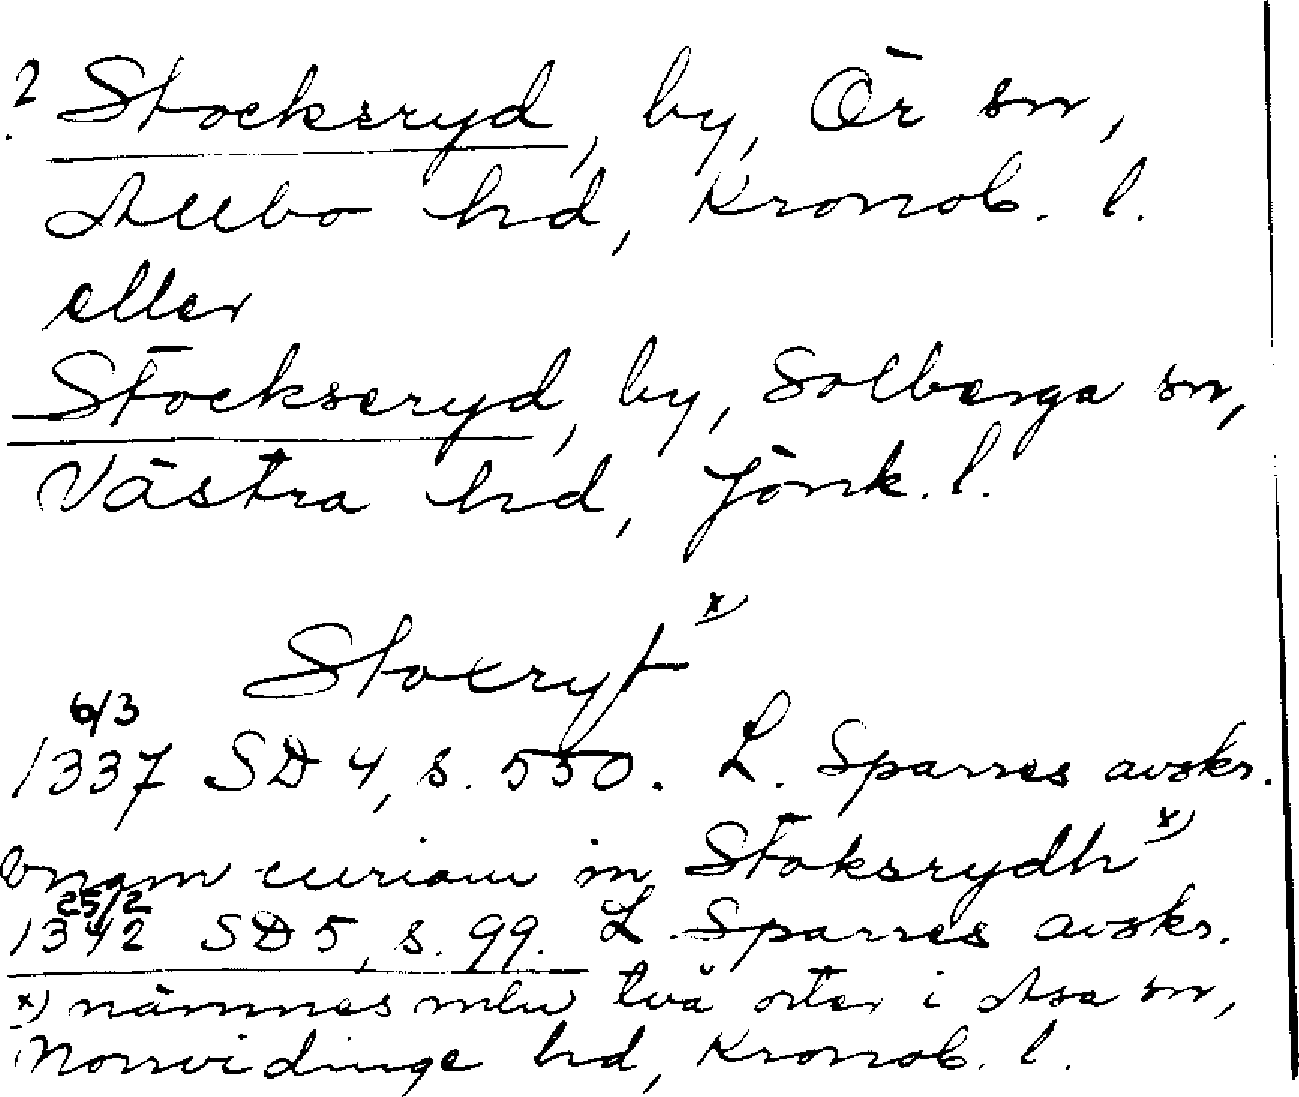 ? Stocksryd, by, Ör sn,
Allbo hd, Kronob. l.
eller
Stockseryd, by, Solberga sn,
Västra hd, Jönk. l.
Stocxryt x)
6/3
1337 SD 4, s. 550. L. Sparres avskr.
vnam curiam in Stoksrydh x)
25/2
1342 SD 5, s. 99. L. Sparres avskr.
x) nämnes mln två orter i Asa sn,
Norrvidinge hd, Kronob. l.